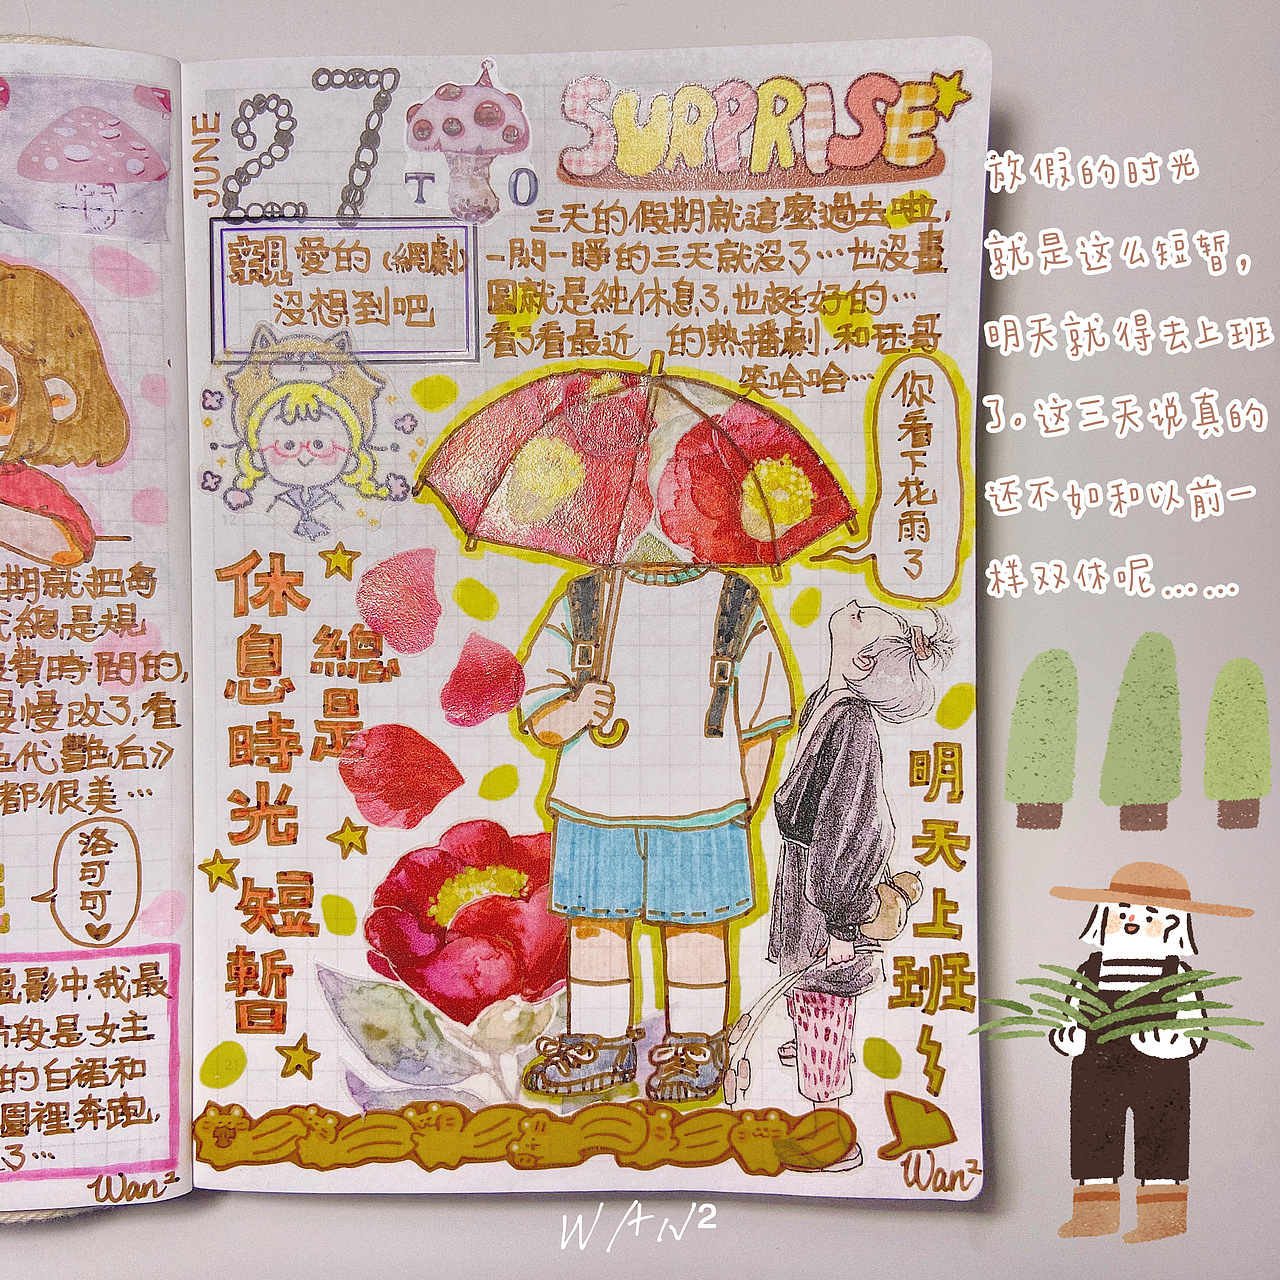 JUNE
27
TO
SURPRISE
三天的假期就這麼過去啦,
一開一睜的三天就沒了…也沒畫
圖就是純休息了,也挺好的…
看了看最近 的熱播劇,和珏哥
笑哈哈…
親愛的(網劇)
沒想到吧
你看下花雨了
總是
休息時光短暫
明天上班
Wan²
期就把每
總是規
費時間的,
慢改了,看
代艷后》
都很美…
洛可可
影中,我最
片段是女主
的白裙和
園裡奔跑,
了…
Wan²
放假的时光
就是这么短暂,
明天就得去上班
了。这三天说真的
还不如和以前一
样双休呢……
WAN²